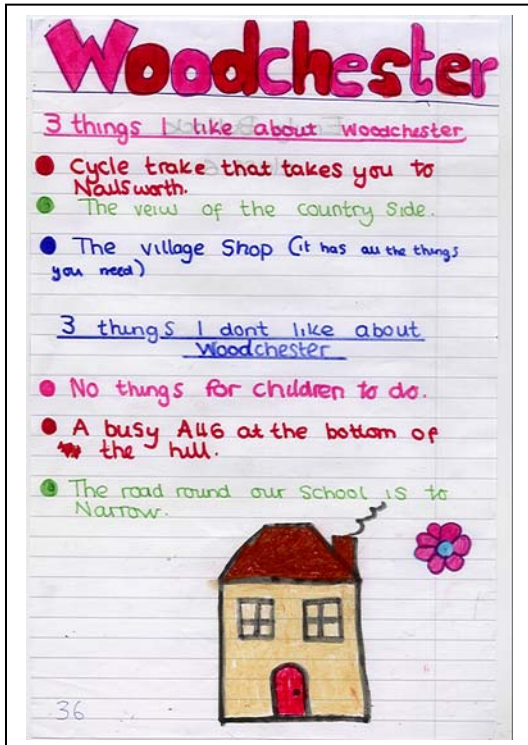 Woodchester
3 things I like about Woodchester
Cycle trake that takes you to
Nailsworth.
The veiw of the country side.
The village Shop (it has all the things
you need)
3 things I dont like about
Woodchester
No things for children to do.
A busy A46 at the bottom of
the hill.
The road round our School is to
Narrow.
36